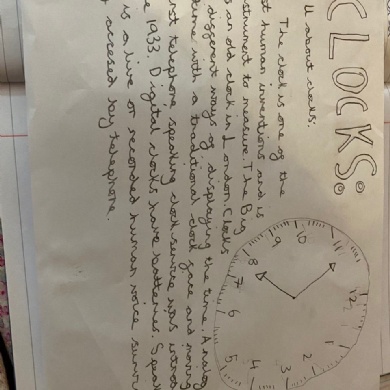 CLOCKS:
ll about clocks.
The clock is one of the
st human inventions and is
strument to measure. The Big
s an old clock in London. Clocks
different ways of displaying the time. Analog
time with a traditional clock face and moving
rst telephone speaking clock service was introd
e 1933. Digital clocks have batteries. Speak
is a live or recorded human voice servic
accesed by telephone.
12
1
2
3
4
5
6
7
8
9
10